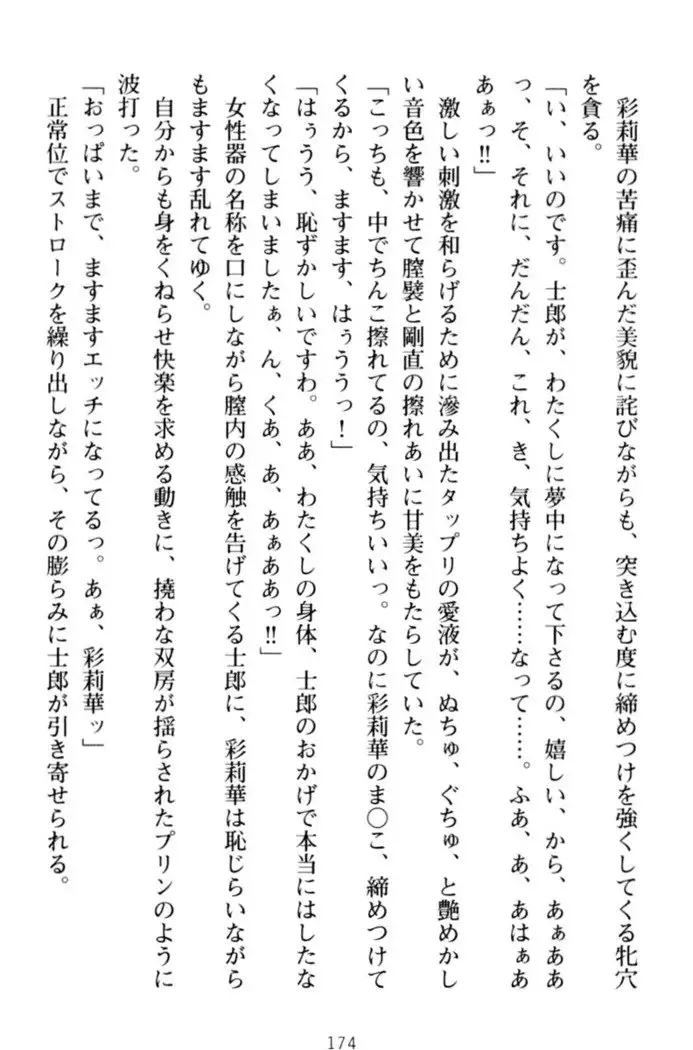 彩莉華の苦痛に歪んだ美貌に詫びながらも、突き込む度に締めつけを強くしてくる牝穴
を貪る。
「い、いいのです。士郎が、わたくしに夢中になって下さるの、嬉しい、から、あぁああ
っ、そ、それに、だんだん、これ、き、気持ちよく……なって……。ふあ、あ、あはぁぁ
あぁっ!!」
激しい刺激を和らげるために滲み出たタップリの愛液が、ぬちゅ、ぐちゅ、と艶めかし
い音色を響かせて膣襞と剛直の擦れあいに甘美をもたらしていた。
「こっちも、中でちんこ擦れてるの、気持ちいいっ。なのに彩莉華のま〇こ、締めつけて
くるから、ますます、はぅううっ!」
「はぅうう、恥ずかしいですわ。ああ、わたくしの身体、士郎のおかげで本当にはしたな
くなってしまいましたぁ、ん、くあ、あ、あぁああっ!!」
女性器の名称を口にしながら膣内の感触を告げてくる士郎に、彩莉華は恥じらいながら
もますます乱れてゆく。
自分からも身をくねらせ快楽を求める動きに、撓わな双房が揺らされたプリンのように
波打った。
「おっぱいまで、ますますエッチになってるっ。あぁ、彩莉華ッ」
正常位でストロークを繰り出しながら、その膨らみに士郎が引き寄せられる。
174